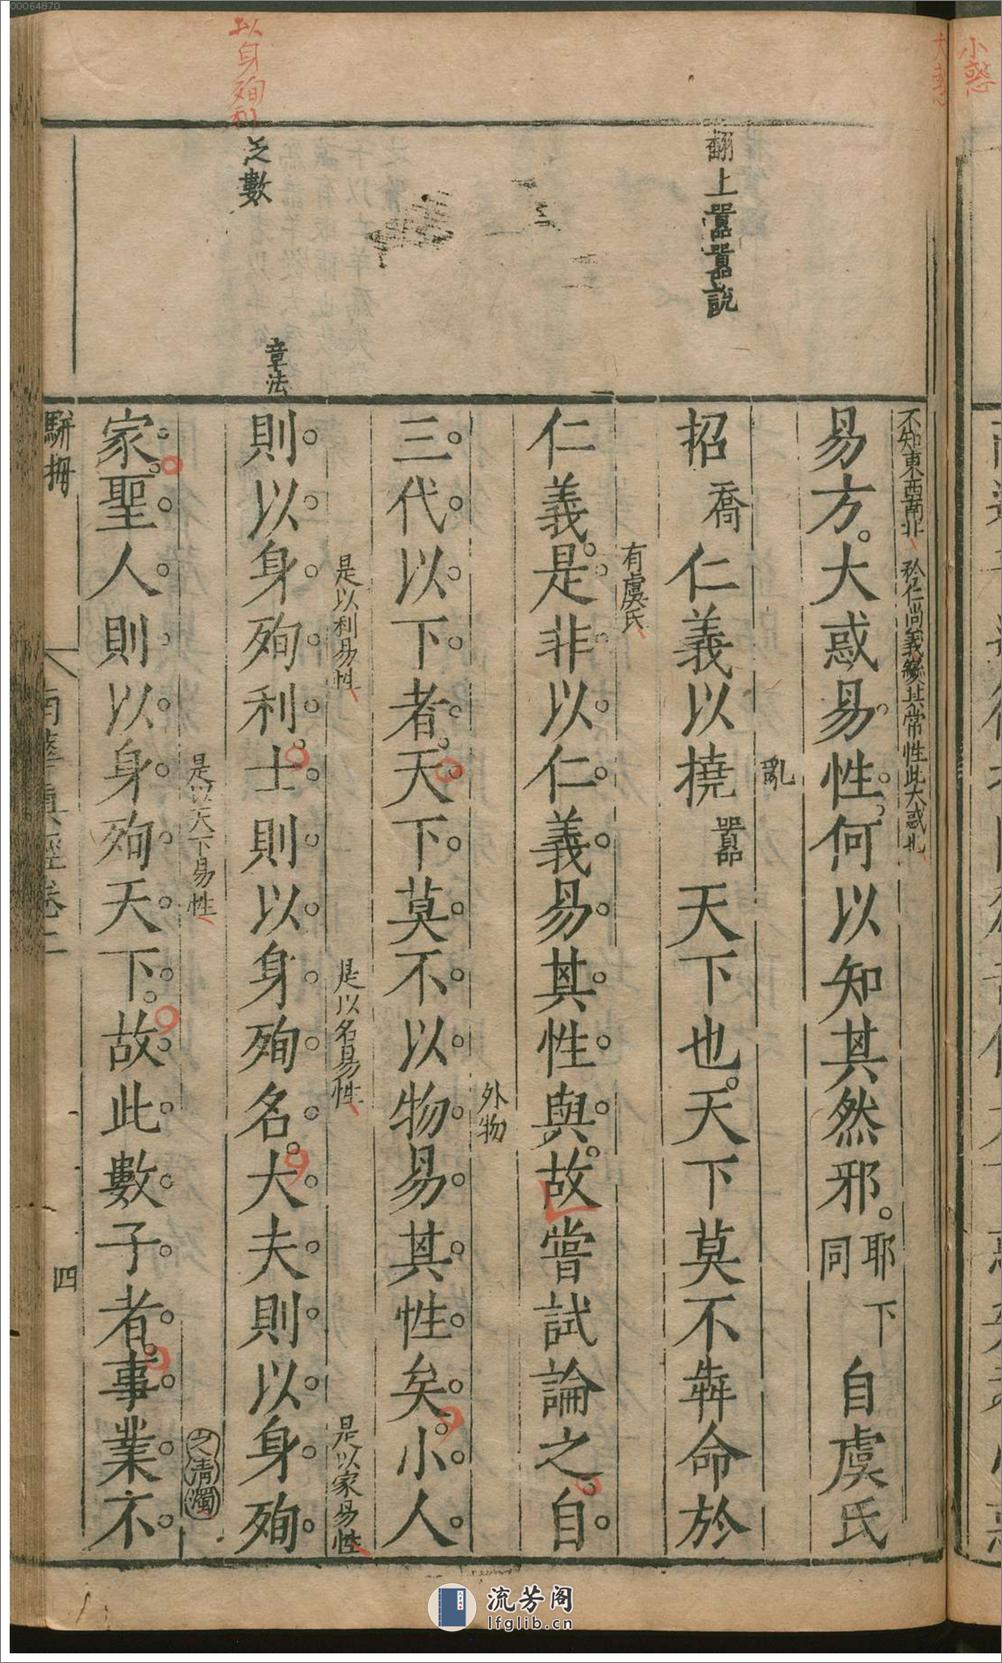 00064870
小惑
翻上囂囂說
以身殉利
之數
章法
不知東西南北 矜仁尚義變其常性此大惑也
易方大惑易性何以知其然邪耶同下自虞氏
亂
招喬仁義以撓囂天下也天下莫不犇命於
有虞氏
仁義是非以仁義易其性與故嘗試論之自
外物
三代以下者天下莫不以物易其性矣小人
是以利易性 是以名易性 是以家易性
則以身殉利士則以身殉名大夫則以身殉
是以天下易性 之清濁
家聖人則以身殉天下故此數子者事業不
駢拇 南華真經卷二 四
流芳阁
lfglib.cn